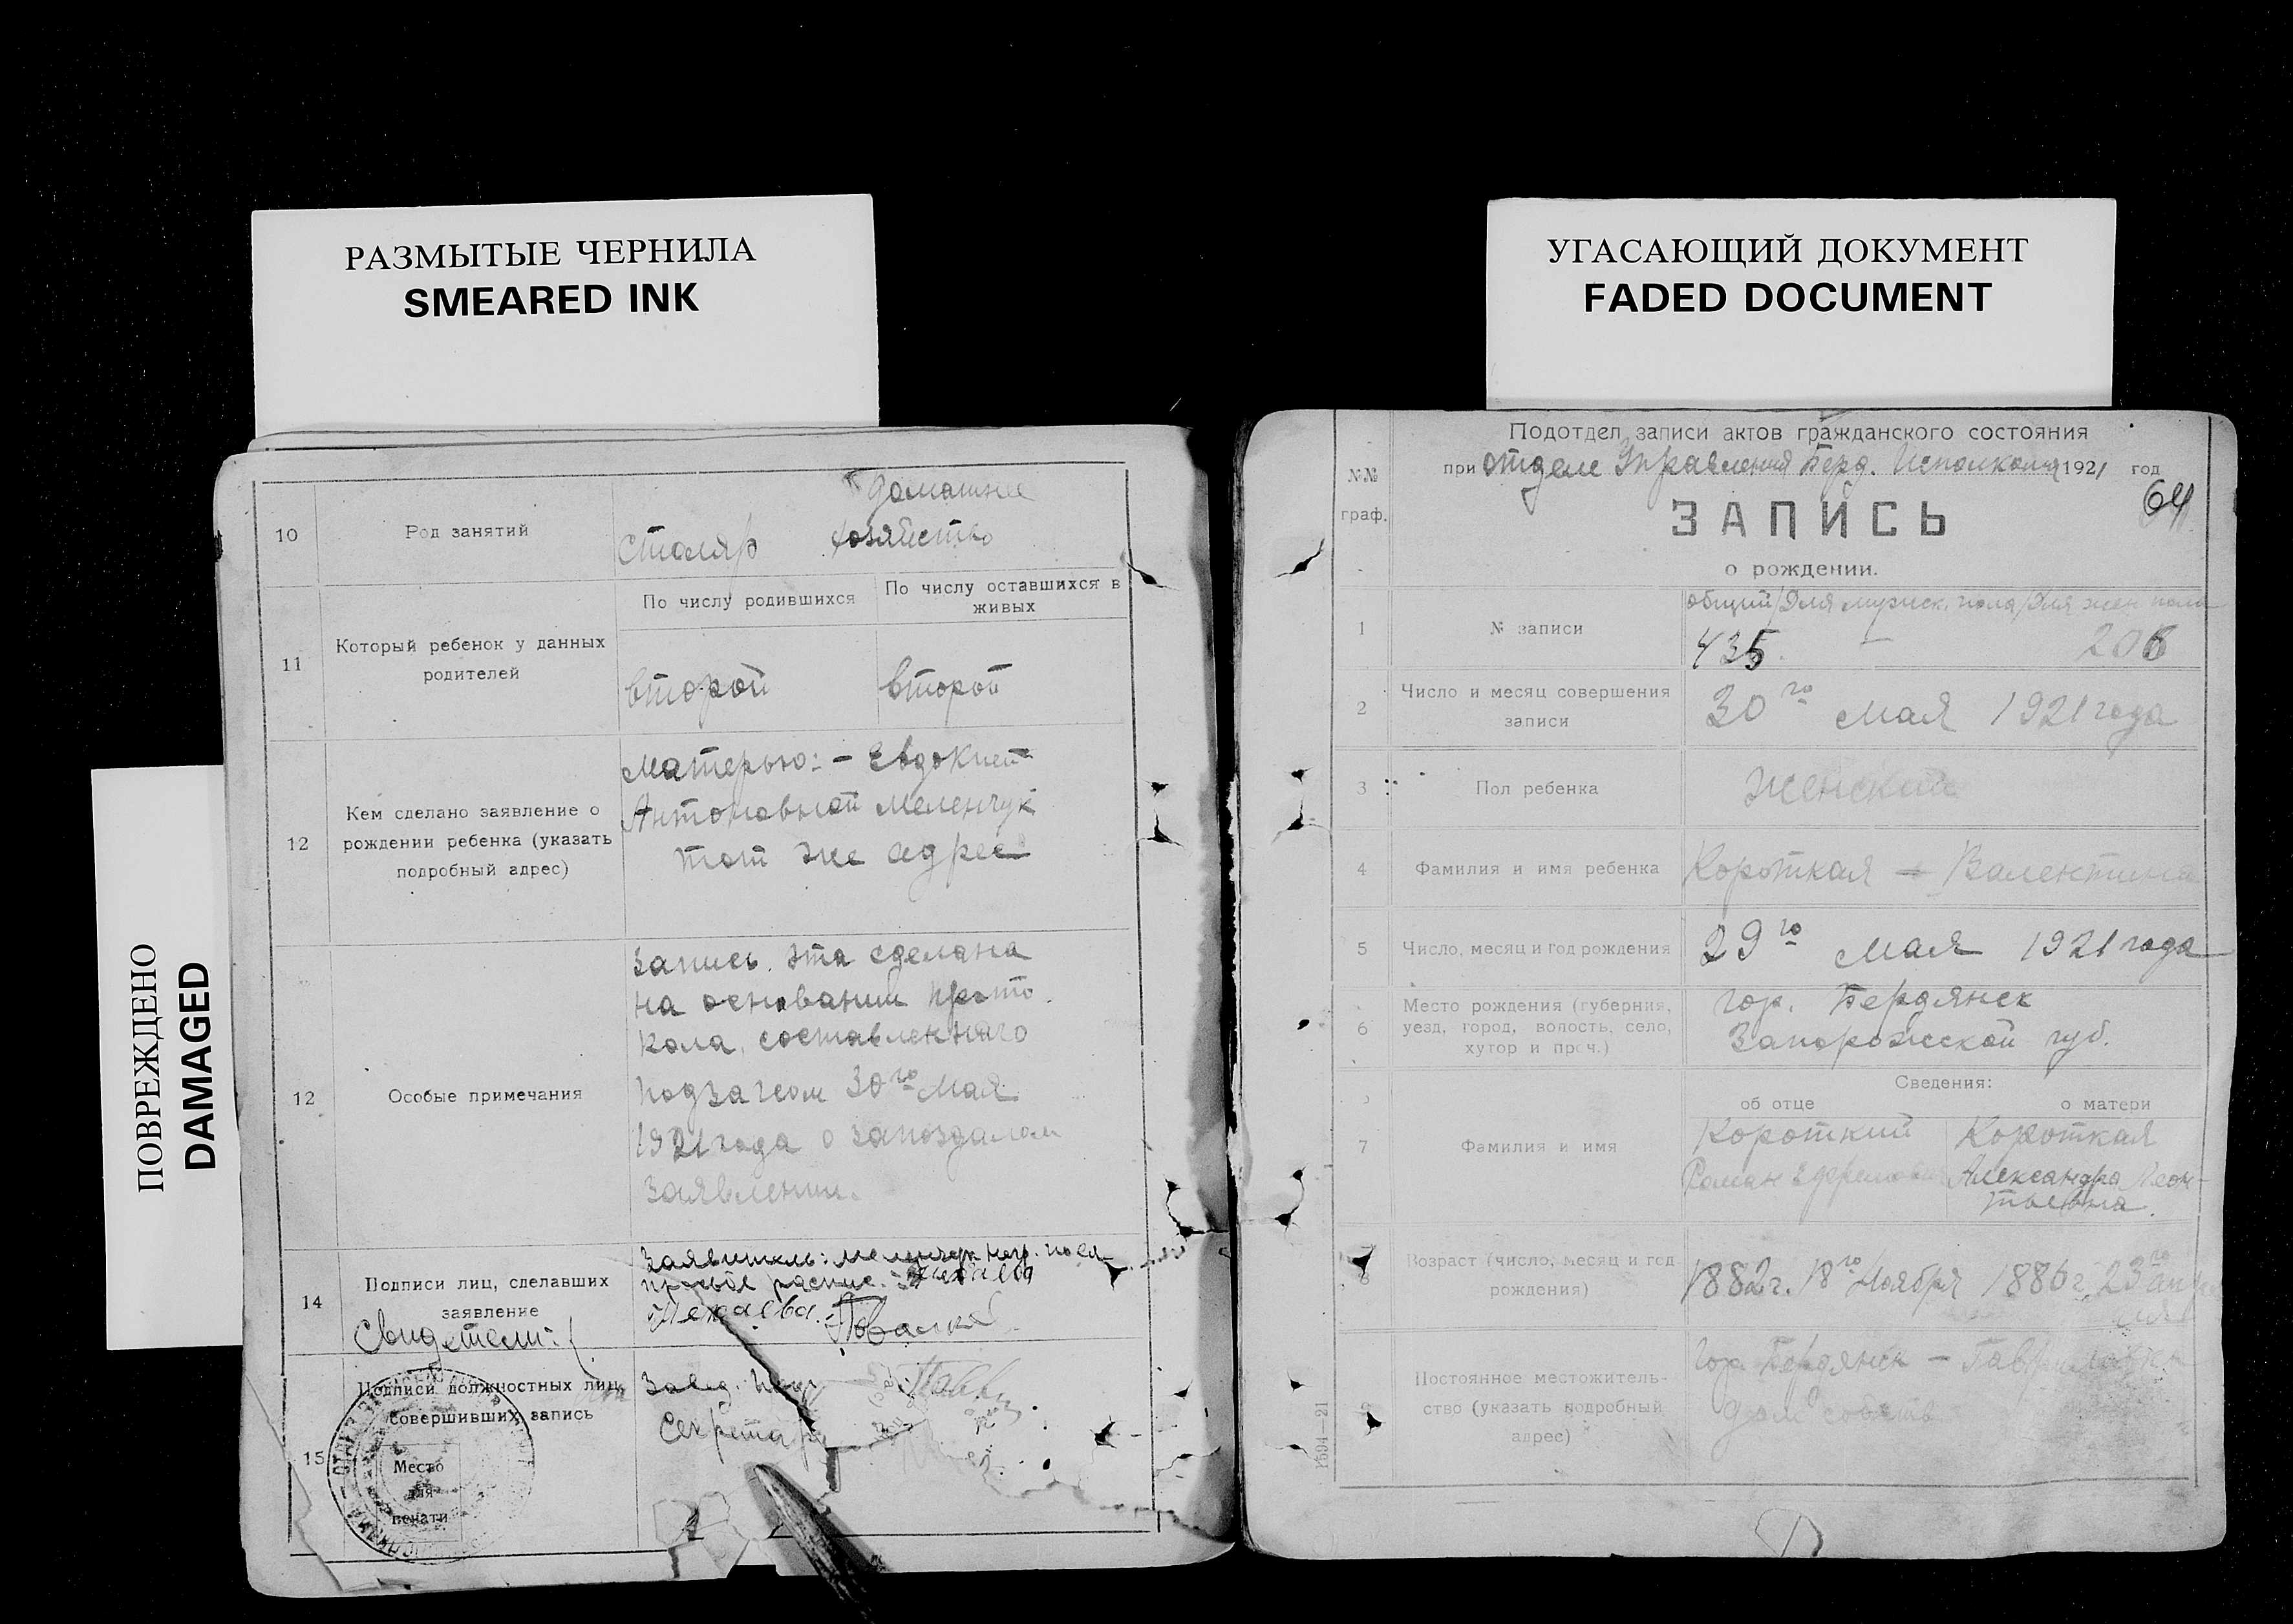 РАЗМЫТЫЕ ЧЕРНИЛА
SMEARED INK
ПОВРЕЖДЕНО
DAMAGED
10
Род занятий
столяр
домашнее
хозяйство
11
Который ребенок у данных
родителей
По числу родившихся
По числу оставшихся в
живых
второй
второй
12
Кем сделано заявление о
рождении ребенка (указать
подробный адрес)
Матерью: – Евдокией
Антоновной Меленчук
тот же адрес
12
Особые примечания
Запись эта сделана
на основании прото
кола, составленного
подзагсом 30го Мая
1921 года о запоздалом
заявлении.
14
Подписи лиц, сделавших
заявление
Свидетели:
Заявитель:
15
Подписи должностных лиц,
совершивших запись
Место
для
печати
Завед.
Секретарь
УГАСАЮЩИЙ ДОКУМЕНТ
FADED DOCUMENT
№№
граф.
Подотдел записи актов гражданского состояния
при отделе Управления Берд. Исполкома 1921 год
64
ЗАПИСЬ
о рождении.
1
№ записи
общий/для мужск. пола/для жен пола
435 – 206
2
Число и месяц совершения
записи
30го Мая 1921 года
3
Пол ребенка
Женский
4
Фамилия и имя ребенка
Короткая – Валентина
5
Число, месяц и год рождения
29го Мая 1921 года
6
Место рождения (губерния,
уезд, город, волость, село,
хутор и проч.)
гор. Бердянск
Запорожской губ.
Сведения:
об отце
о матери
7
Фамилия и имя
Короткий
Роман
Короткая
Александра Леон-
тьевна.
8
Возраст (число, месяц и год
рождения)
1882 г. 18го Ноября
1886 г. 23го апре
ля
9
Постоянное местожитель-
ство (указать подробный
адрес)
гор. Бердянск –
дом
1694—21